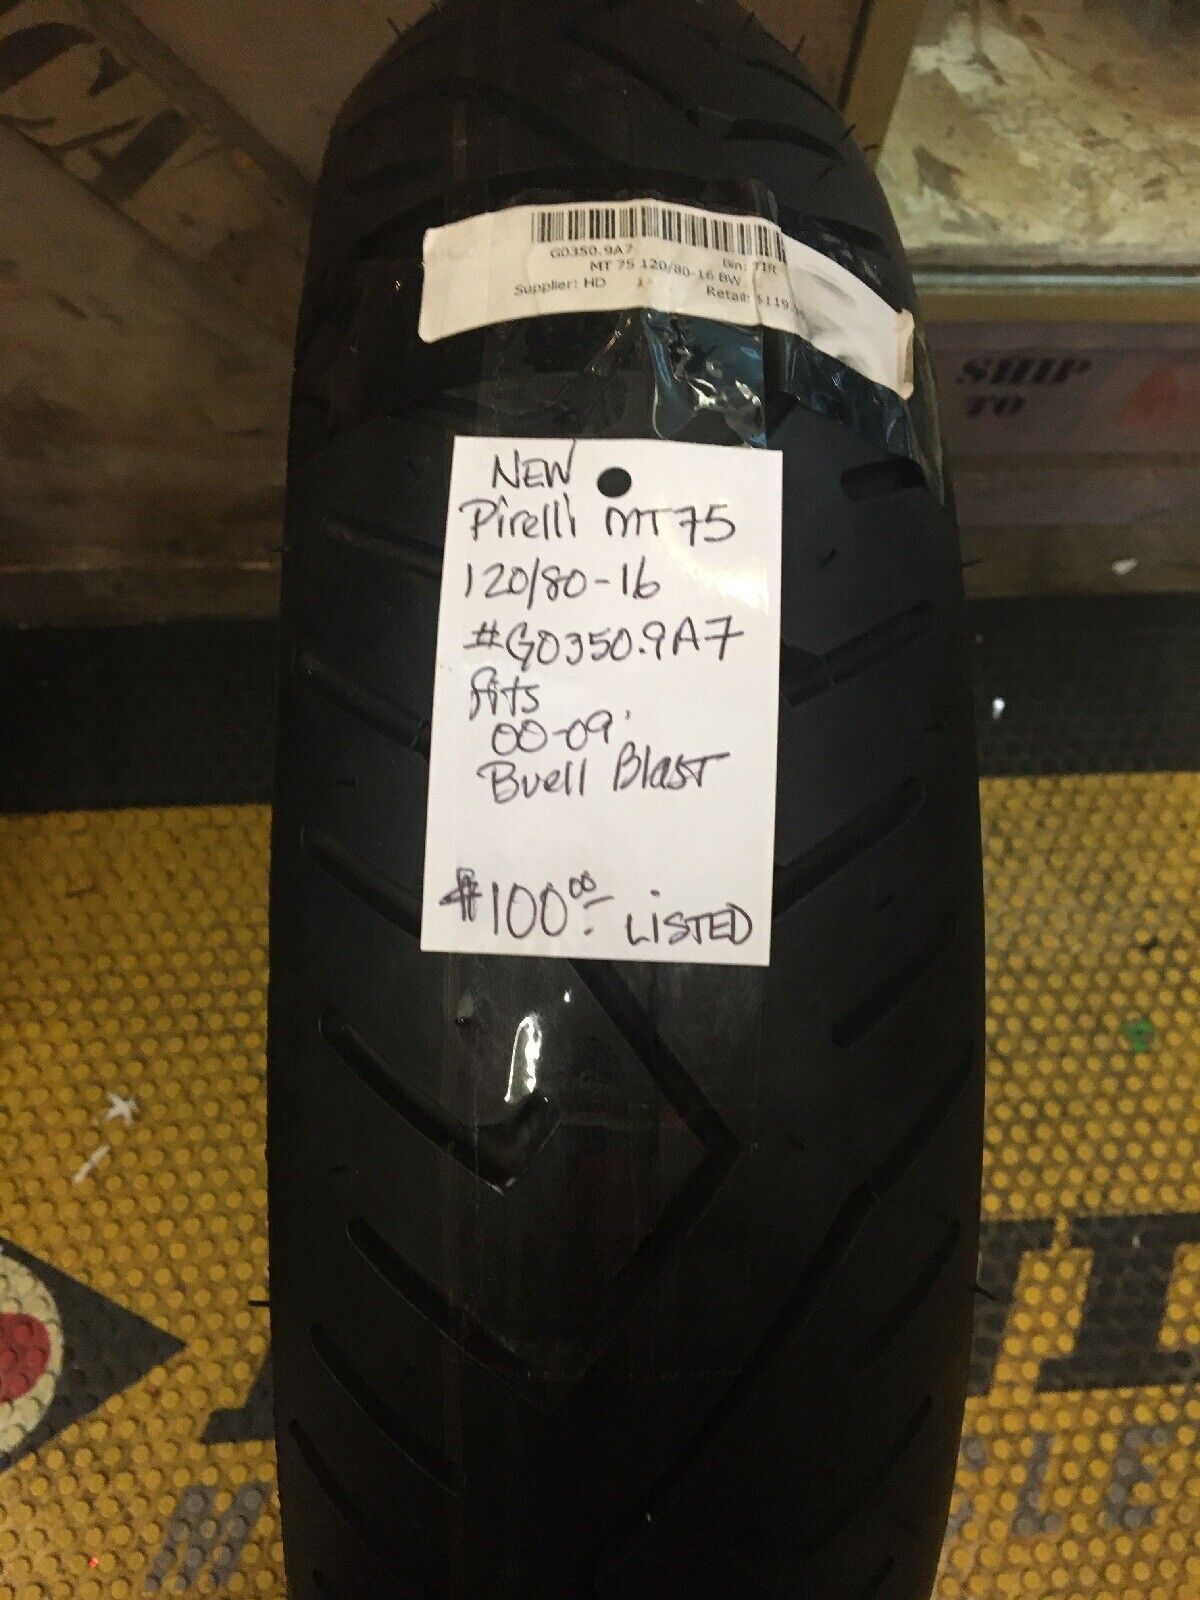 G0350.9A7 Bin: TIR
MT 75 120/80-16 BW
Supplier: HD 1 Retail: $119
SHIP
TO
NEW
Pirelli MT75
120/80-16
#G0350.9A7
fits
00-09'
Buell Blast
$100.00 LISTED